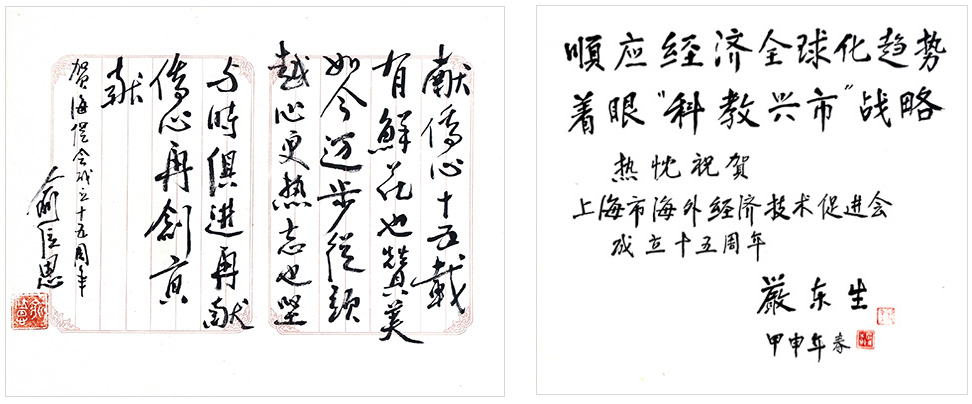 献僑心十五載
有鮮花也贊美
如今迈步從頭
越心更热志也坚
与時俱進再献
僑心再創貢
献
贺海促会成立十五周年
順应经济全球化趋势
着眼"科教兴市"战略
热忱祝贺
上海市海外经济技术促进会
成立十五周年
严东生
甲申年春